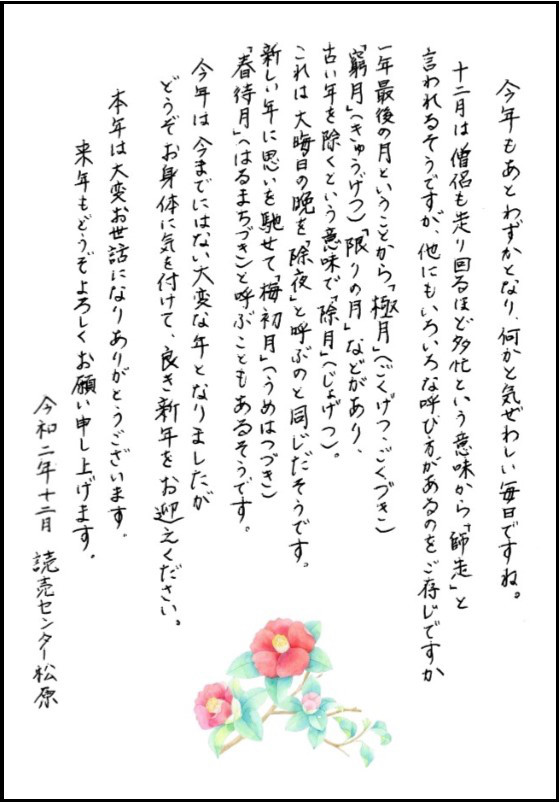 今年もあとわずかとなり、何かと気ぜわしい毎日ですね。
十二月は僧侶も走り回るほど多忙という意味から「師走」と
言われるそうですが、他にもいろいろな呼び方があるのをご存じですか
一年最後の月ということから「極月」(ごくげつ、ごくづき)
「窮月」(きゅうげつ)「限りの月」などがあり、
古い年を除くという意味で「除月」(じょげつ)。
これは大晦日の晩を「除夜」と呼ぶのと同じだそうです。
新しい年に思いを馳せて「梅初月」(うめはつづき)
「春待月」(はるまちづき)と呼ぶこともあるそうです。
今年は今までにはない大変な年となりましたが
どうぞお身体に気を付けて、良き新年をお迎えください。
本年は大変お世話になりありがとうございます。
来年もどうぞよろしくお願い申し上げます。
令和二年十二月 読売センター松原